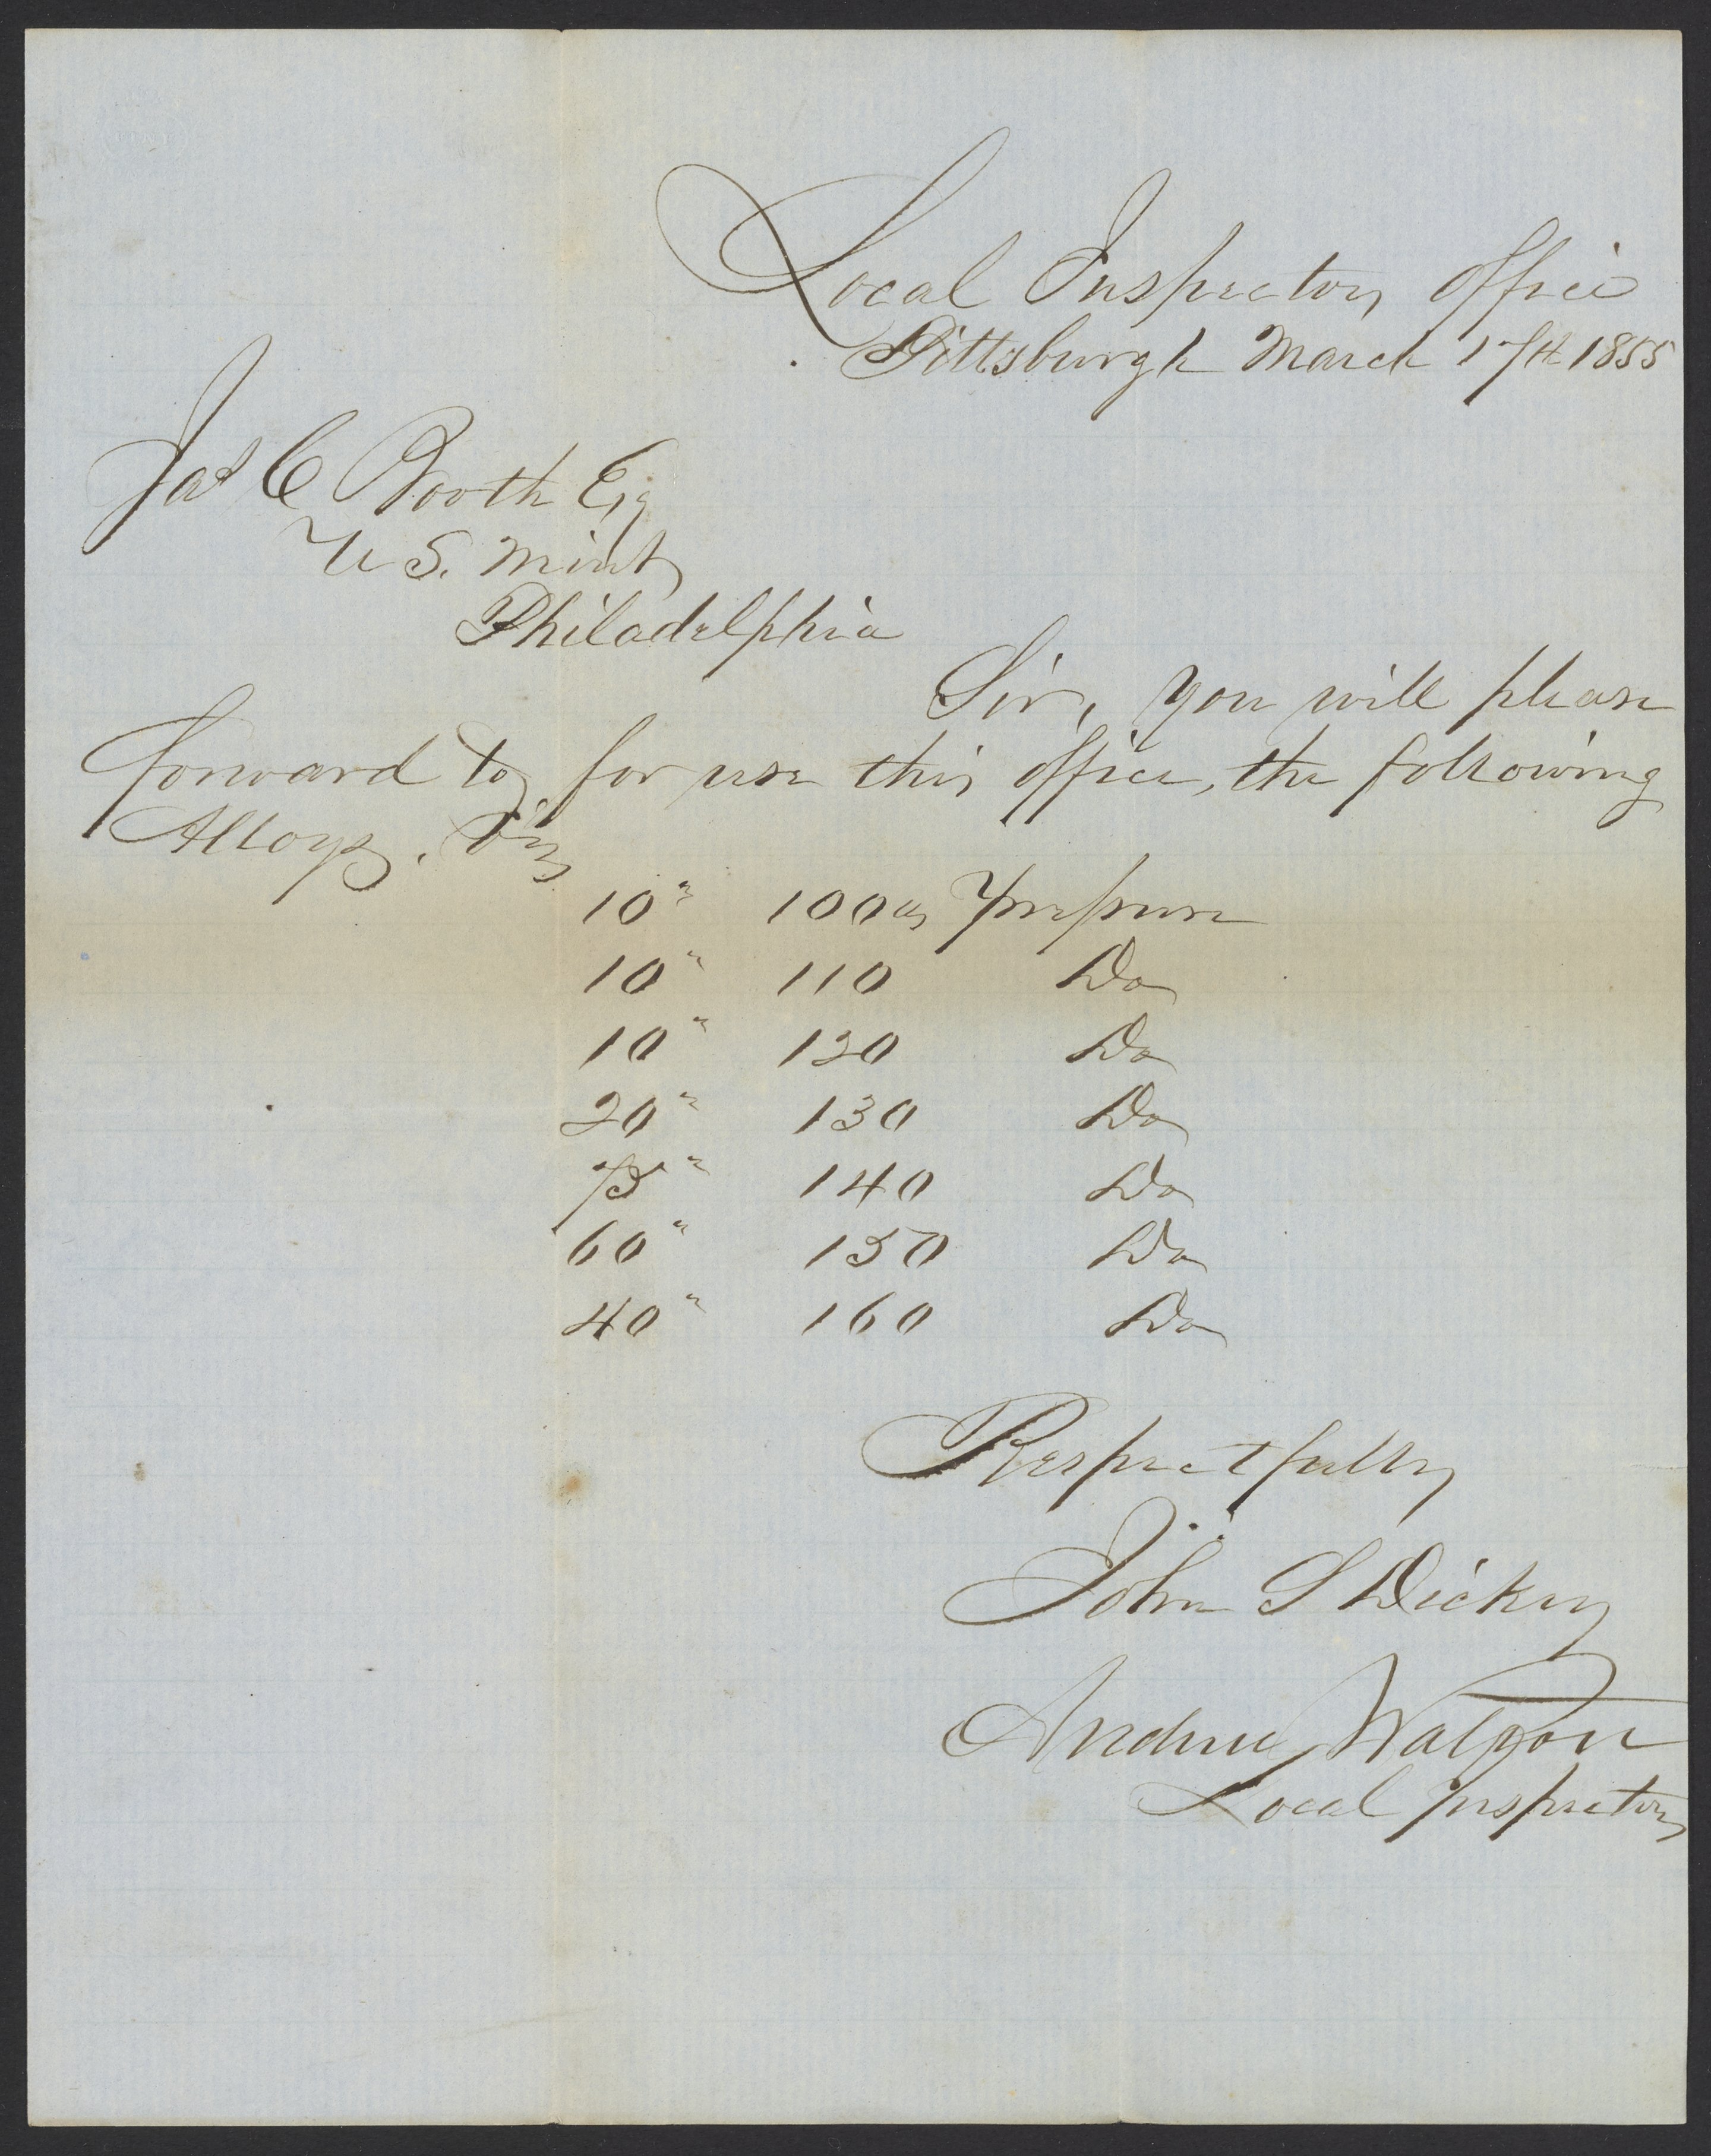 Local Inspectors office
Pittsburgh March 17th 1855
Jas C Booth Esq
U S. Mint
Philadelphia
Sir, you will please
forward to, for use this office, the following
Alloys. Viz
10 " 100 lbs Pressure
10 " 110 Do
10 " 120 Do
20 " 130 Do
75 " 140 Do
60 " 150 Do
40 " 160 Do
Respectfully
John S Dickey
Andrew Watson
Local Inspectors